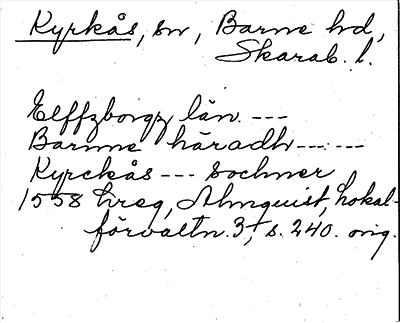 Kyrkås, sn, Barne hd,
Skarab. l.
Elffzborgz län ---
Barnne häradh --- ---
Kyrckås --- sochner
1558 hreg, Almquist, Lokal-
förvaltn. 3, s. 240. orig.